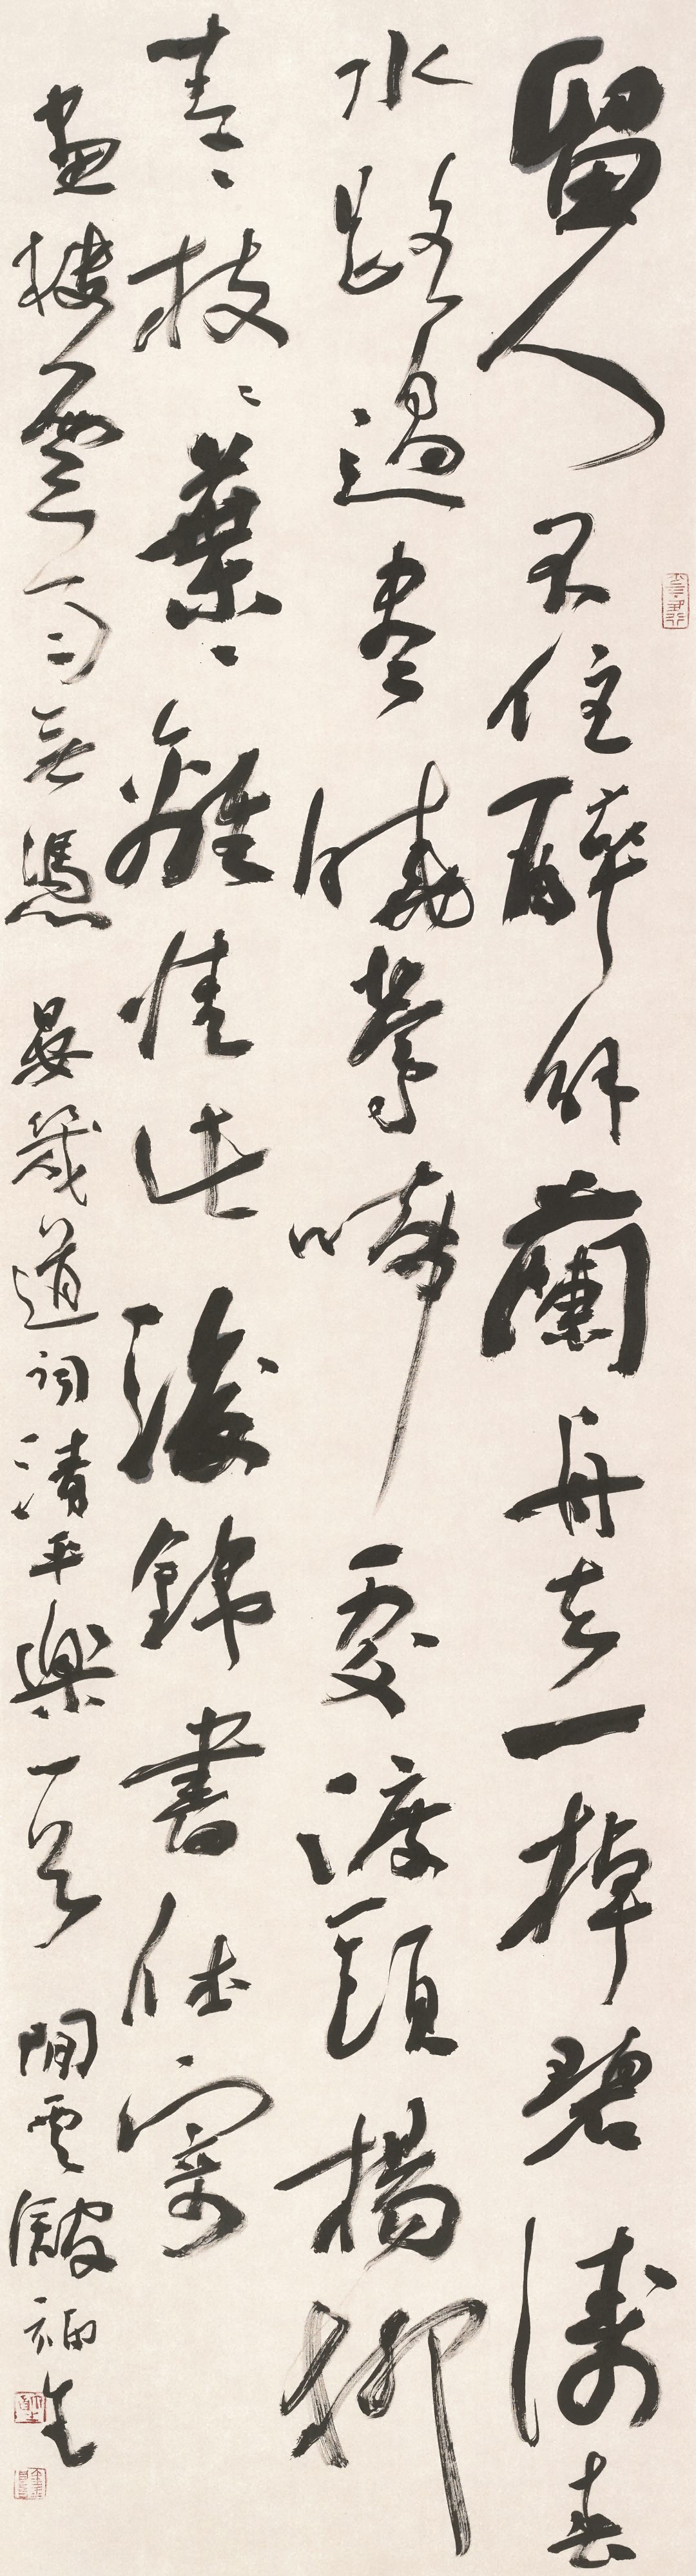 留人不住醉解蘭舟去一棹碧濤春
水路過盡曉鶯啼處渡頭楊柳
青〻枝〻葉〻離情此後錦書休寄
畫樓雲雨無憑 晏幾道詞清平樂一首 閒雲館福生